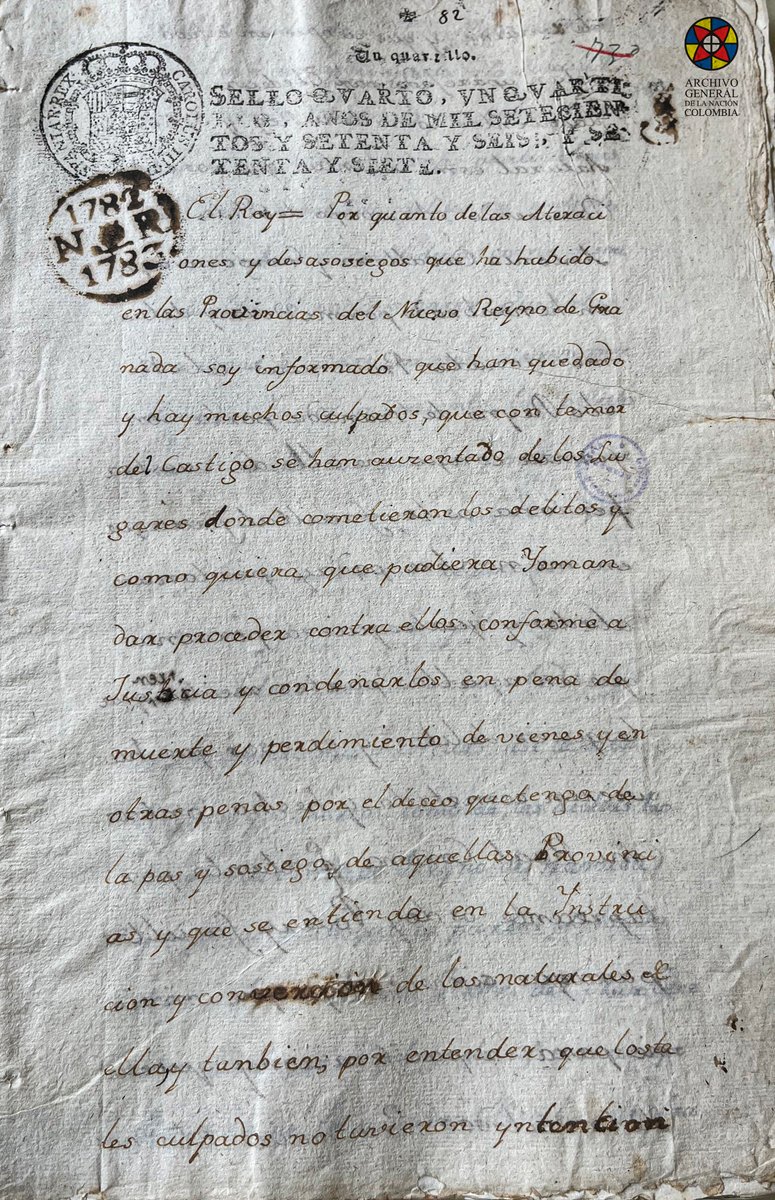 82
Un quartillo.
ARCHIVO
GENERAL
DE LA NACIÓN
COLOMBIA
CAROLUS III
SELLO QVARTO, VN QVARTI
AÑOS DE MIL SETECIEN-
TOS Y SETENTA Y SEIS, Y SE-
TENTA Y SIETE.
1782
N R
1783
El Rey= Por quanto de las Alteraci
ones y desasosiegos que ha habido
en las Provincias del Nuevo Reyno de Gra
nada soy informado que han quedado
y hay muchos culpados, que con temor
del Castigo se han auzentado de los Lu
gares donde cometieron los delitos y
como quiera que pudiera Yo man
dar proceder contra ellos conforme a
Justicia y condenarlos en pena de
muerte y perdimiento de vienes y en
otras penas por el deceo que tenga de
la pas y sosiego de aquellas Provinci
as y que se entienda en la Instru
cion y converción de los naturales de
ella, y tanbien, por entender que los ta
les culpados no tuvieron yntencion